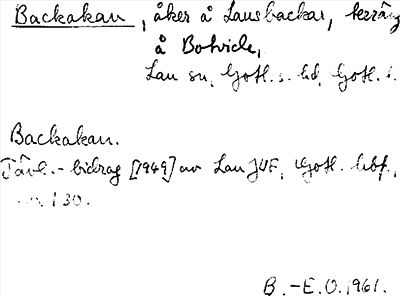 Backakan, åker å Lausbackar, terräng
å Botvide,
Lau sn, Gotl. s. hd, Gotl. l.
Backakan.
Tävl.-bidrag [1949] av Lau JUF, Gotl. hbf,
s. 130.
B.-E.O. 1961.